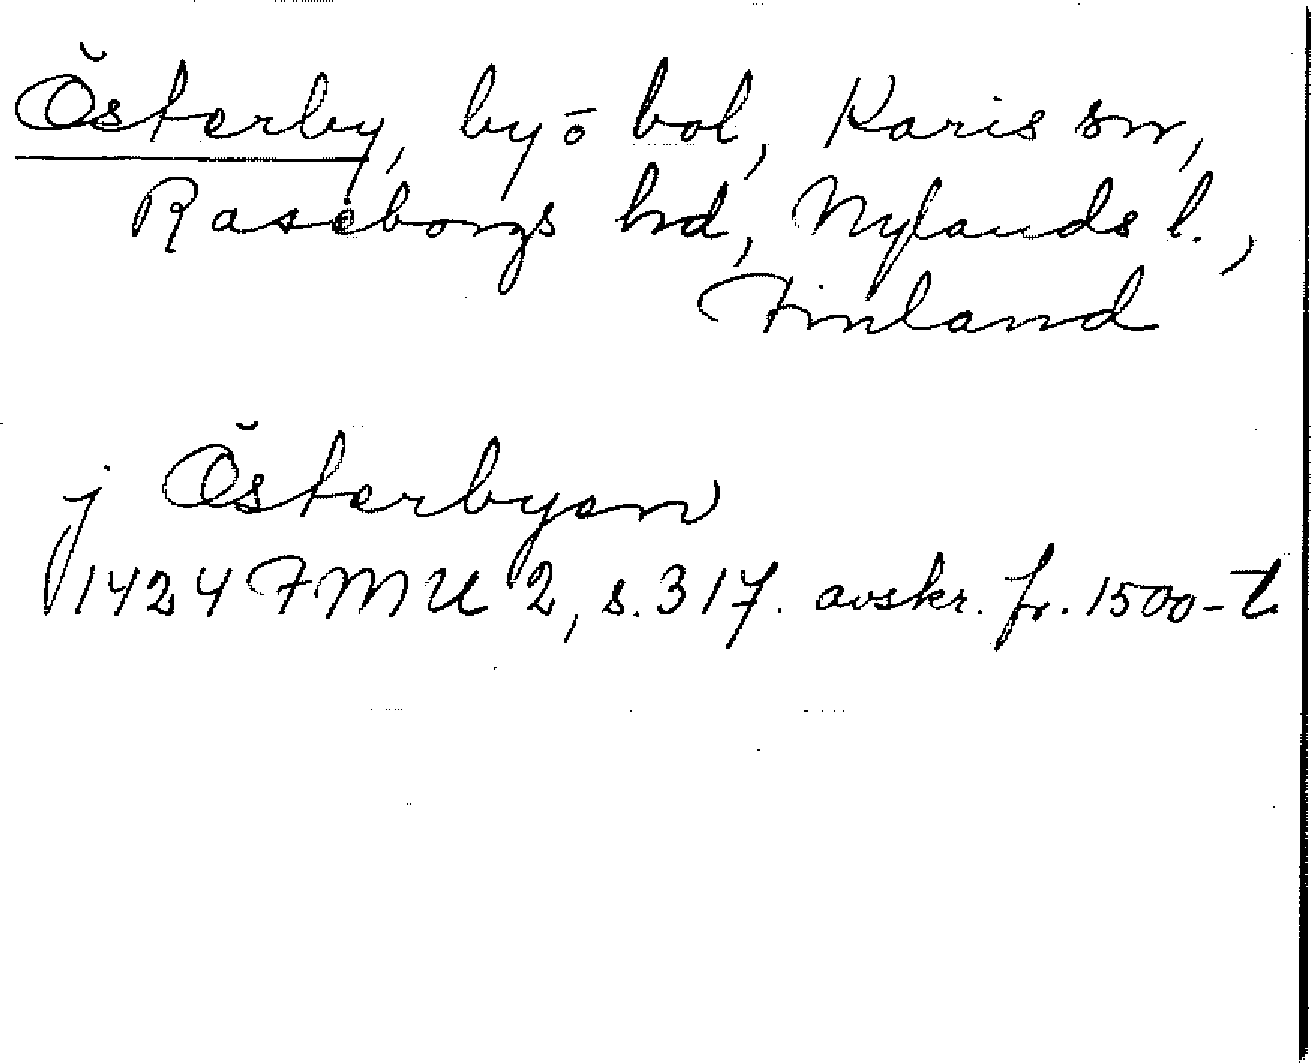 Österby, by o bol, Karis sn,
Raseborgs hd, Nylands l.,
Finland
j Österbyen
1424 FMU 2, s. 317. avskr. fr. 1500-t.